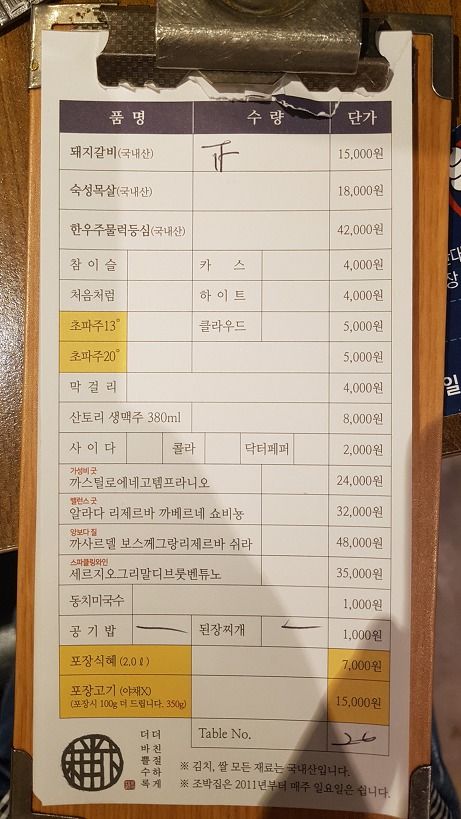 품 명 수 량 단가
돼지갈비(국내산) 正 15,000원
숙성목살(국내산) 18,000원
한우주물럭등심(국내산) 42,000원
참 이 슬 카 스 4,000원
처음처럼 하 이 트 4,000원
초파주13° 클라우드 5,000원
초파주20° 5,000원
막 걸 리 4,000원
산토리 생맥주 380ml 8,000원
사 이 다 콜라 닥터페퍼 2,000원
가성비 굿
까스틸로에네고템프라니오 24,000원
밸런스 굿
알라다 리제르바 까베르네 쇼비뇽 32,000원
양보다 질
까사르델 보스께그랑리제르바 쉬라 48,000원
스파클링와인
세르지오그리말디브룻벤튜노 35,000원
동치미국수 1,000원
공 기 밥 一 된장찌개 一 1,000원
포장식혜 (2,0ℓ) 7,000원
포장고기 (야채X) 15,000원
(포장시 100g 더 드립니다. 350g)
Table No. 26
더 친절하게
더 바쁠수록
※ 김치, 쌀 모든 재료는 국내산입니다.
※ 조박집은 2011년부터 매주 일요일은 쉽니다.
장
일